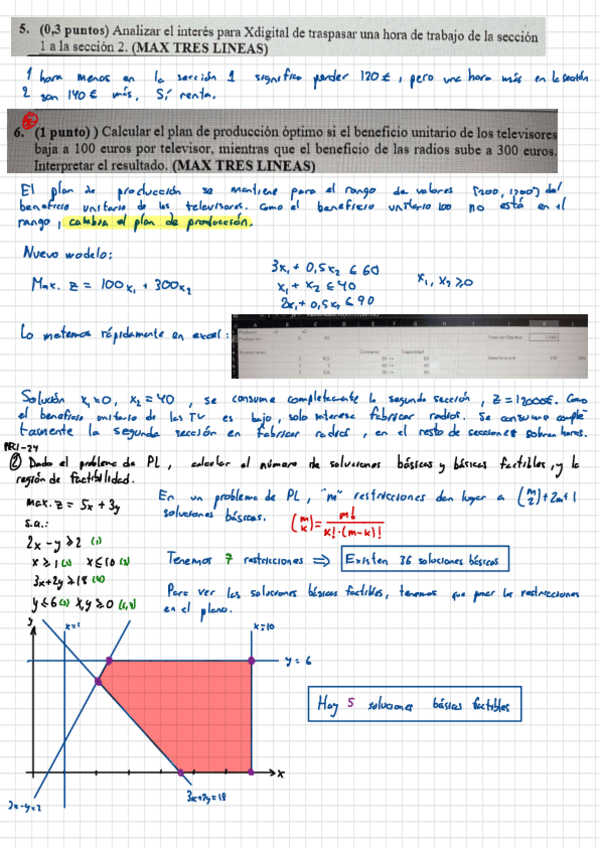 5. (0,3 puntos) Analizar el interés para Xdigital de traspasar una hora de trabajo de la sección
1 a la sección 2. (MAX TRES LINEAS)
1 hora menos en la sección 1 significa perder 120€, pero una hora más en la sección
2 son 140€ más, Sí renta.
6. (1 punto) ) Calcular el plan de producción óptimo si el beneficio unitario de los televisores
baja a 100 euros por televisor, mientras que el beneficio de las radios sube a 300 euros.
Interpretar el resultado. (MAX TRES LINEAS)
El plan de producción se mantiene para el rango de valores [200, 1200] del
beneficio unitario de los televisores. Como el beneficio unitario 100 no está en el
rango, cambia el plan de producción.
Nuevo modelo:
Max. z = 100x₁ + 300x₂
3x₁ + 0,5x₂ ≤ 60
x₁ + x₂ ≤ 40
2x₁ + 0,5x₂ ≤ 90
x₁, x₂ ≥ 0
Lo metemos rápidamente en excel:
Solución x₁=0, x₂=40, se consume completamente la segunda sección, z=12000€. Como
el beneficio unitario de las TV es bajo, solo interesa fabricar radios. Se consume comple-
tamente la segunda sección en fabricar radios, en el resto de secciones sobran horas.
PR1-24
② Dado el problema de PL, calcular el número de soluciones básicas y básicas factibles, y la
región de factibilidad.
max. z = 5x + 3y
s.a.:
2x - y ≥ 2 (1)
x ≥ 1 (2) x ≤ 10 (3)
3x + 2y ≥ 18 (4)
y ≤ 6 (5) x,y ≥ 0 (6,7)
En un problema de PL, "m" restricciones dan lugar a (m 2) + 2m + 1
soluciones básicas. (m k) = m! / k!·(m-k)!
Tenemos 7 restricciones ⇒ Existen 36 soluciones básicas
Para ver las soluciones básicas factibles, tenemos que poner las restricciones
en el plano.
y
x=1
x=10
y = 6
Hay 5 soluciones básicas factibles
x
2x-y=2
3x+2y=18